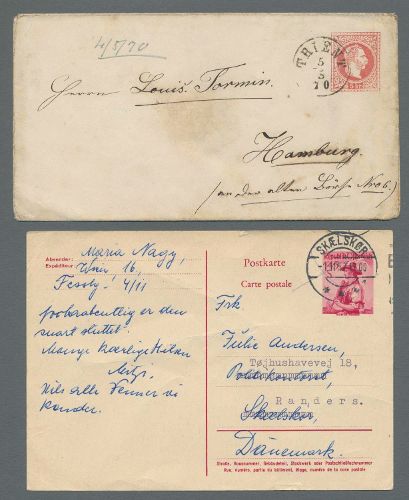 4/5/70
THIENE
5
5
70
5 KR.
Herrn Louis Formin.
Hamburg.
(an der alten Börse No 6.)
Absender:
Expéditeur
Maria Nagy,
Wien 16,
4/11
Postkarte
Carte postale
SKÆLSKØR
Frk.
Julie Andersen,
Tøjhushavevej 18,
Randers.
Skælskør
Dänemark.
er den
snart sluttet.
Mange kærlige Hilsen
Hils alle Venner vi
kender.
Straße, Hausnummer, Gebäudeteil, Stockwerk oder Postschließfachnummer
Rue, numéro, partie du bâtiment, étage, numéro de la case postale